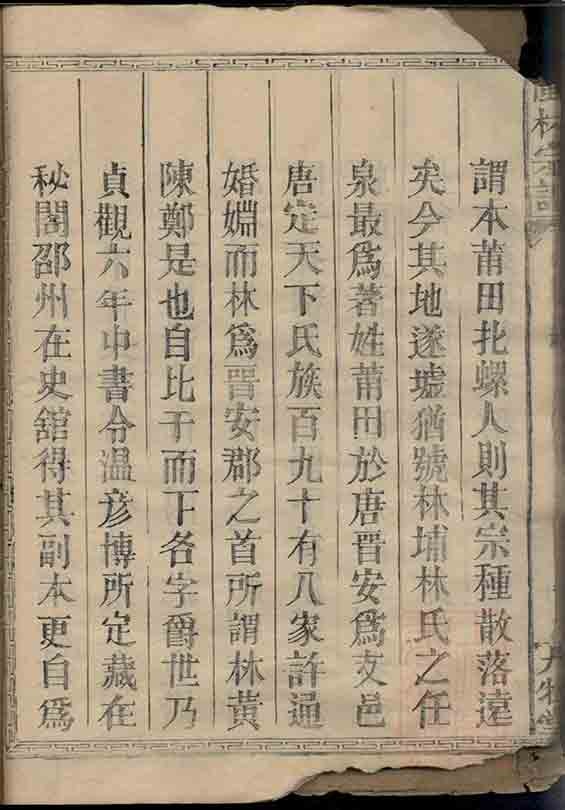 林宗譜
謂本莆田北螺人則其宗種散落遠
矣今其地遂墟猶號林埔林氏之在
泉最爲著姓莆田於唐晋安爲支邑
唐定天下氏族百九十有八家許通
婚婣而林爲晋安郡之首所謂林黄
陳鄭是也自比干而下各字爵世乃
貞觀六年中書令温彦博所定藏在
秘閣邵州在史舘得其副本更自爲